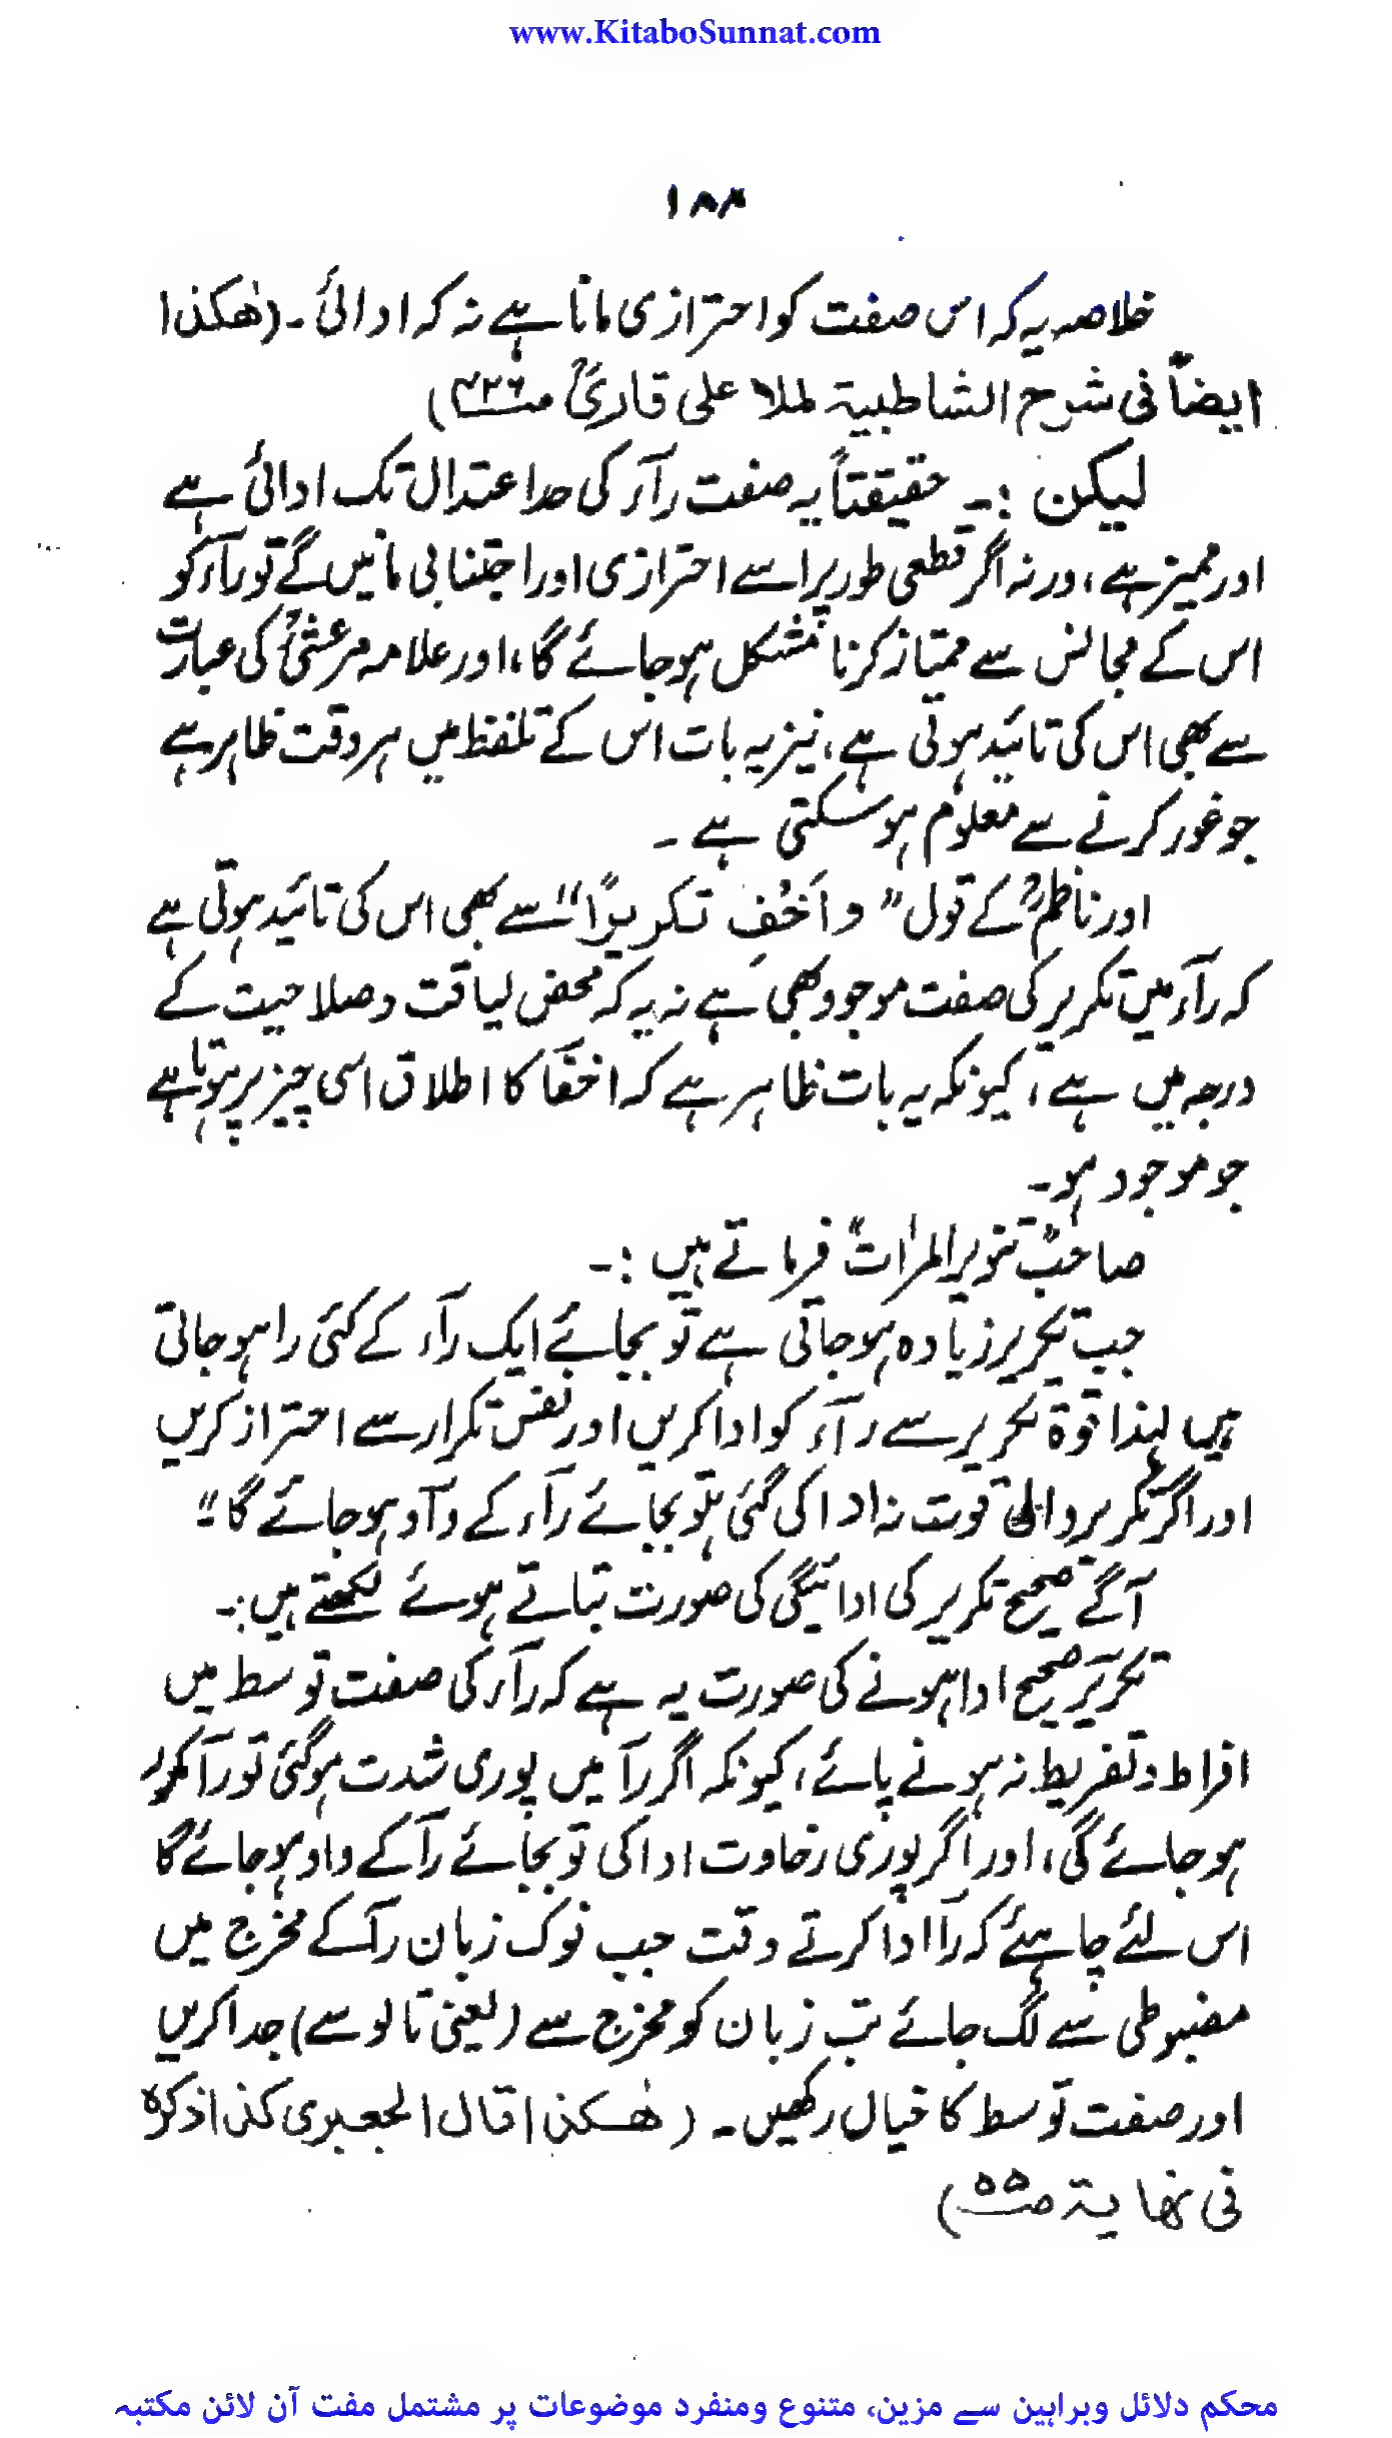 www.KitaboSunnat.com
۱۸۴
خلاصہ یہ کہ اس صفت کو احترازی مانا ہے نہ کہ ادائی ۔ (ھٰکذا
ایضاً فی شرح الشاطبیۃ لملا علی قاریؒ ص۴۳۶)
لیکن :۔ حقیقتاً یہ صفت رآر کی حد اعتدال تک ادائی ہے
اور ممیز ہے، ورنہ اگر قطعی طور پر اسے احترازی اور اجتنابی مانیں گے تو رآء کو
اس کے مجانس سے ممتاز کرنا مشکل ہو جائے گا، اور علامہ مرعشیؒ کی عبارت
سے بھی اس کی تائید ہوتی ہے، نیز یہ بات اس کے تلفظ میں ہر وقت ظاہر ہے
جو غور کرنے سے معلوم ہو سکتی ہے ۔
اور ناظمؒ کے قول ” و اَخْفِ تکریرًا “ سے بھی اس کی تائید ہوتی ہے
کہ رآء میں تکریر کی صفت موجود بھی ہے نہ یہ کہ محض لیاقت و صلاحیت کے
درجہ میں ہے، کیونکہ یہ بات ظاہر ہے کہ اخفا کا اطلاق اسی چیز پر ہوتا ہے
جو موجود ہو۔
صاحب ”تنویر المرات“ فرماتے ہیں :۔
جب تکریر زیادہ ہو جاتی ہے تو بجائے ایک رآء کے کئی را ہو جاتی
ہیں لہذا قوۃ تکریر سے رآء کو ادا کریں اور نفس تکرار سے احتراز کریں
اور اگر تکریر والی قوت نہ ادا کی گئی تو بجائے رآء کے وآو ہو جائے گا “
آگے صحیح تکریر کی ادائیگی کی صورت بتاتے ہوئے لکھتے ہیں:۔
تکریر صحیح ادا ہونے کی صورت یہ ہے کہ رآر کی صفت توسط میں
افراط و تفریط نہ ہونے پائے، کیونکہ اگر رآ میں پوری شدت ہو گئی تو رآ مکرر
ہو جائے گی، اور اگر پوری رخاوت ادا کی تو بجائے رآ کے واو ہو جائے گا
اس لئے چاہئے کہ رآ ادا کرتے وقت جب نوک زبان رآ کے مخرج میں
مضبوطی سے لگ جائے تب زبان کو مخرج سے (یعنی تالو سے) جدا کریں
اور صفت توسط کا خیال رکھیں ۔ (ھٰکذا قال الجعبری کذا ذکرہ
فی نھایۃ ص۵۵)
محکم دلائل وبراہین سے مزین، متنوع ومنفرد موضوعات پر مشتمل مفت آن لائن مکتبہ